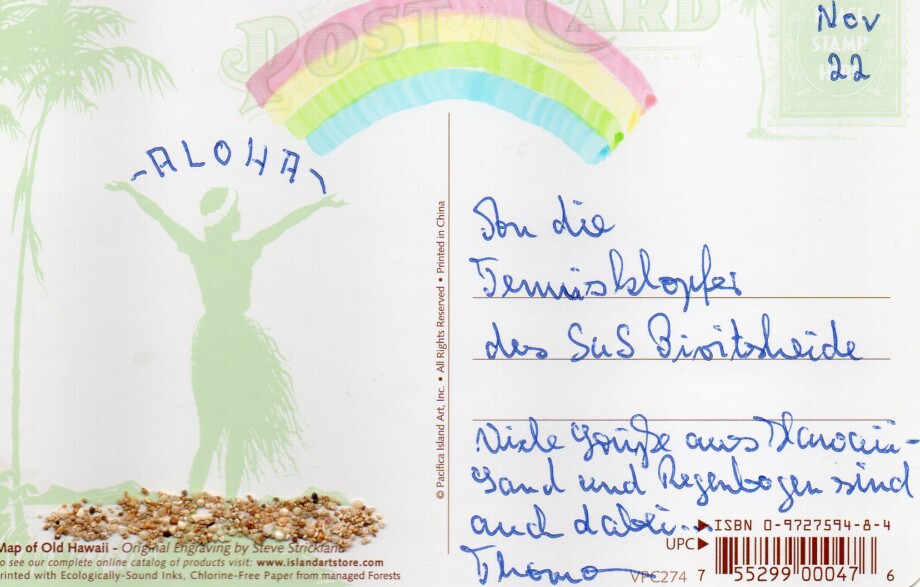 POST CARD
Nov
22
PLACE
STAMP
HERE
-ALOHA-
An die
Tennisklopfer
des SuS Bivitsheide
Viele Grüße aus Hawaii-
Sand und Regenbogen sind
auch dabei...
Thomas
© Pacifica Island Art, Inc. • All Rights Reserved • Printed in China
Map of Old Hawaii - Original Engraving by Steve Strickland
To see our complete online catalog of products visit: www.islandartstore.com
Printed with Ecologically-Sound Inks, Chlorine-Free Paper from managed Forests
ISBN 0-9727594-8-4
UPC
VPC274
7 55299 00047 6